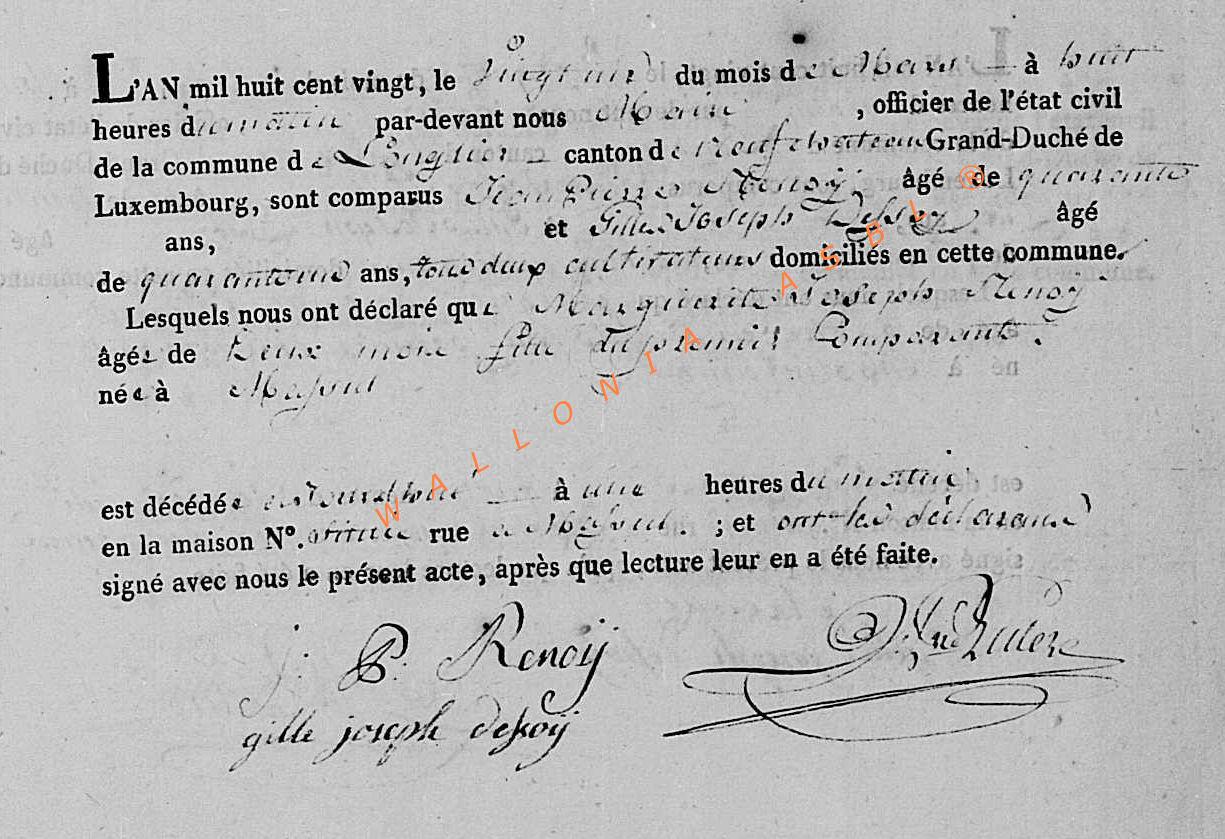 L'AN mil huit cent vingt, le vingt un du mois de Mars à huit
heures du matin par-devant nous Maire, officier de l'état civil
de la commune de Longlier canton de neufchateau Grand-Duché de
Luxembourg, sont comparus Jean Pierre Renoy, âgé de quarante
ans, et Gille Joseph âgé
de quarante ans, tous deux cultivateurs domiciliés en cette commune.
Lesquels nous ont déclaré que Marguerite Joseph Renoy
âgée de mois fille du premier Comparant.
née à Massul
est décédée à une heures du matin
en la maison N°. rue a Massul. ; et ont les déclarans
signé avec nous le présent acte, après que lecture leur en a été faite.
J: P. Renoÿ
gille joseph
WALLONIA ASBL ®